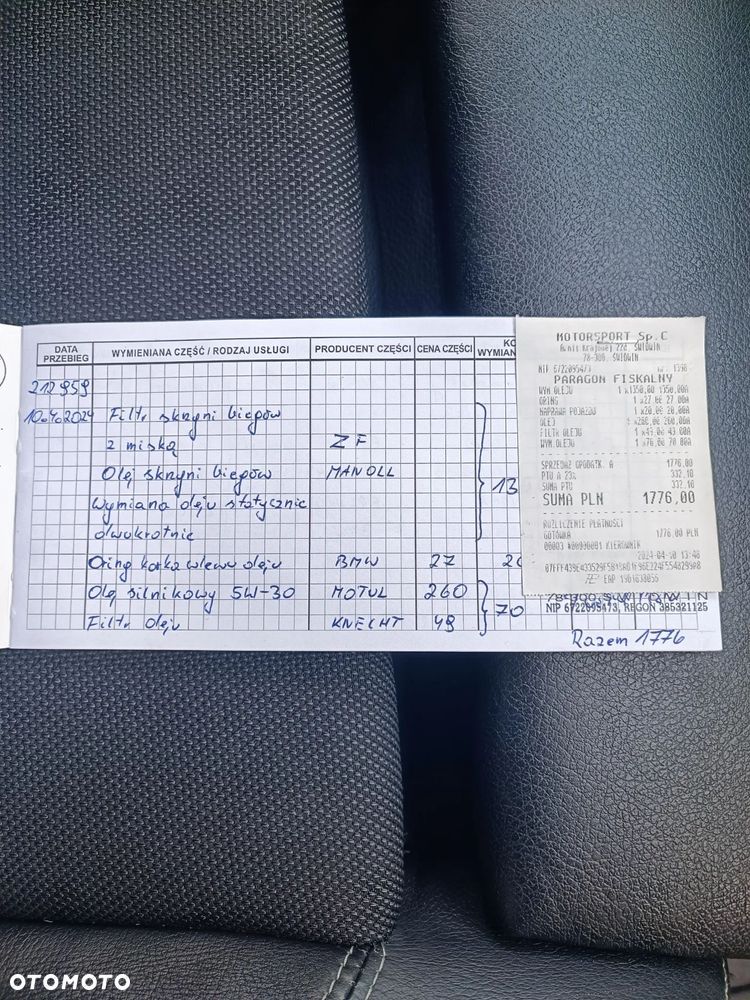 DATA PRZEBIEG
WYMIENIANA CZĘŚĆ / RODZAJ USŁUGI
PRODUCENT CZĘŚCI
CENA CZĘŚCI
KO
WYMIAN
212959
10.4.2024 Filtr skrzyni biegów
z miską ZF
Olej skrzyni biegów MANOLL
13
Wymiana oleju statycznie
dwukrotnie
Oring korka wlewu oleju BMW 27 20
Olej silnikowy 5W-30 MOTUL 260
70
Filtr oleju KNECHT 49
NIP 6722095473, REGON 385321125
Razem 1776
MOTORSPORT Sp.C
78-300 ŚWIDWIN
PARAGON FISKALNY
WYM OLEJU 1 x1350,00 1350,00A
ORING 1 x27,00 27,00A
NAPRAWA POJAZDU 1 x20,00 20,00A
OLEJ 1 x260,00 260,00A
FILTR OLEJU 1 x49,00 49,00A
WYM.OLEJU 1 x70,00 70,00A
SPRZEDAŻ OPODATK. A 1776,00
PTU A 23% 332,10
SUMA PTU 332,10
SUMA PLN 1776,00
ROZLICZENIE PŁATNOŚCI
GOTÓWKA 1776,00 PLN
KIEROWNIK
2024-04-10 13:48
OTOMOTO